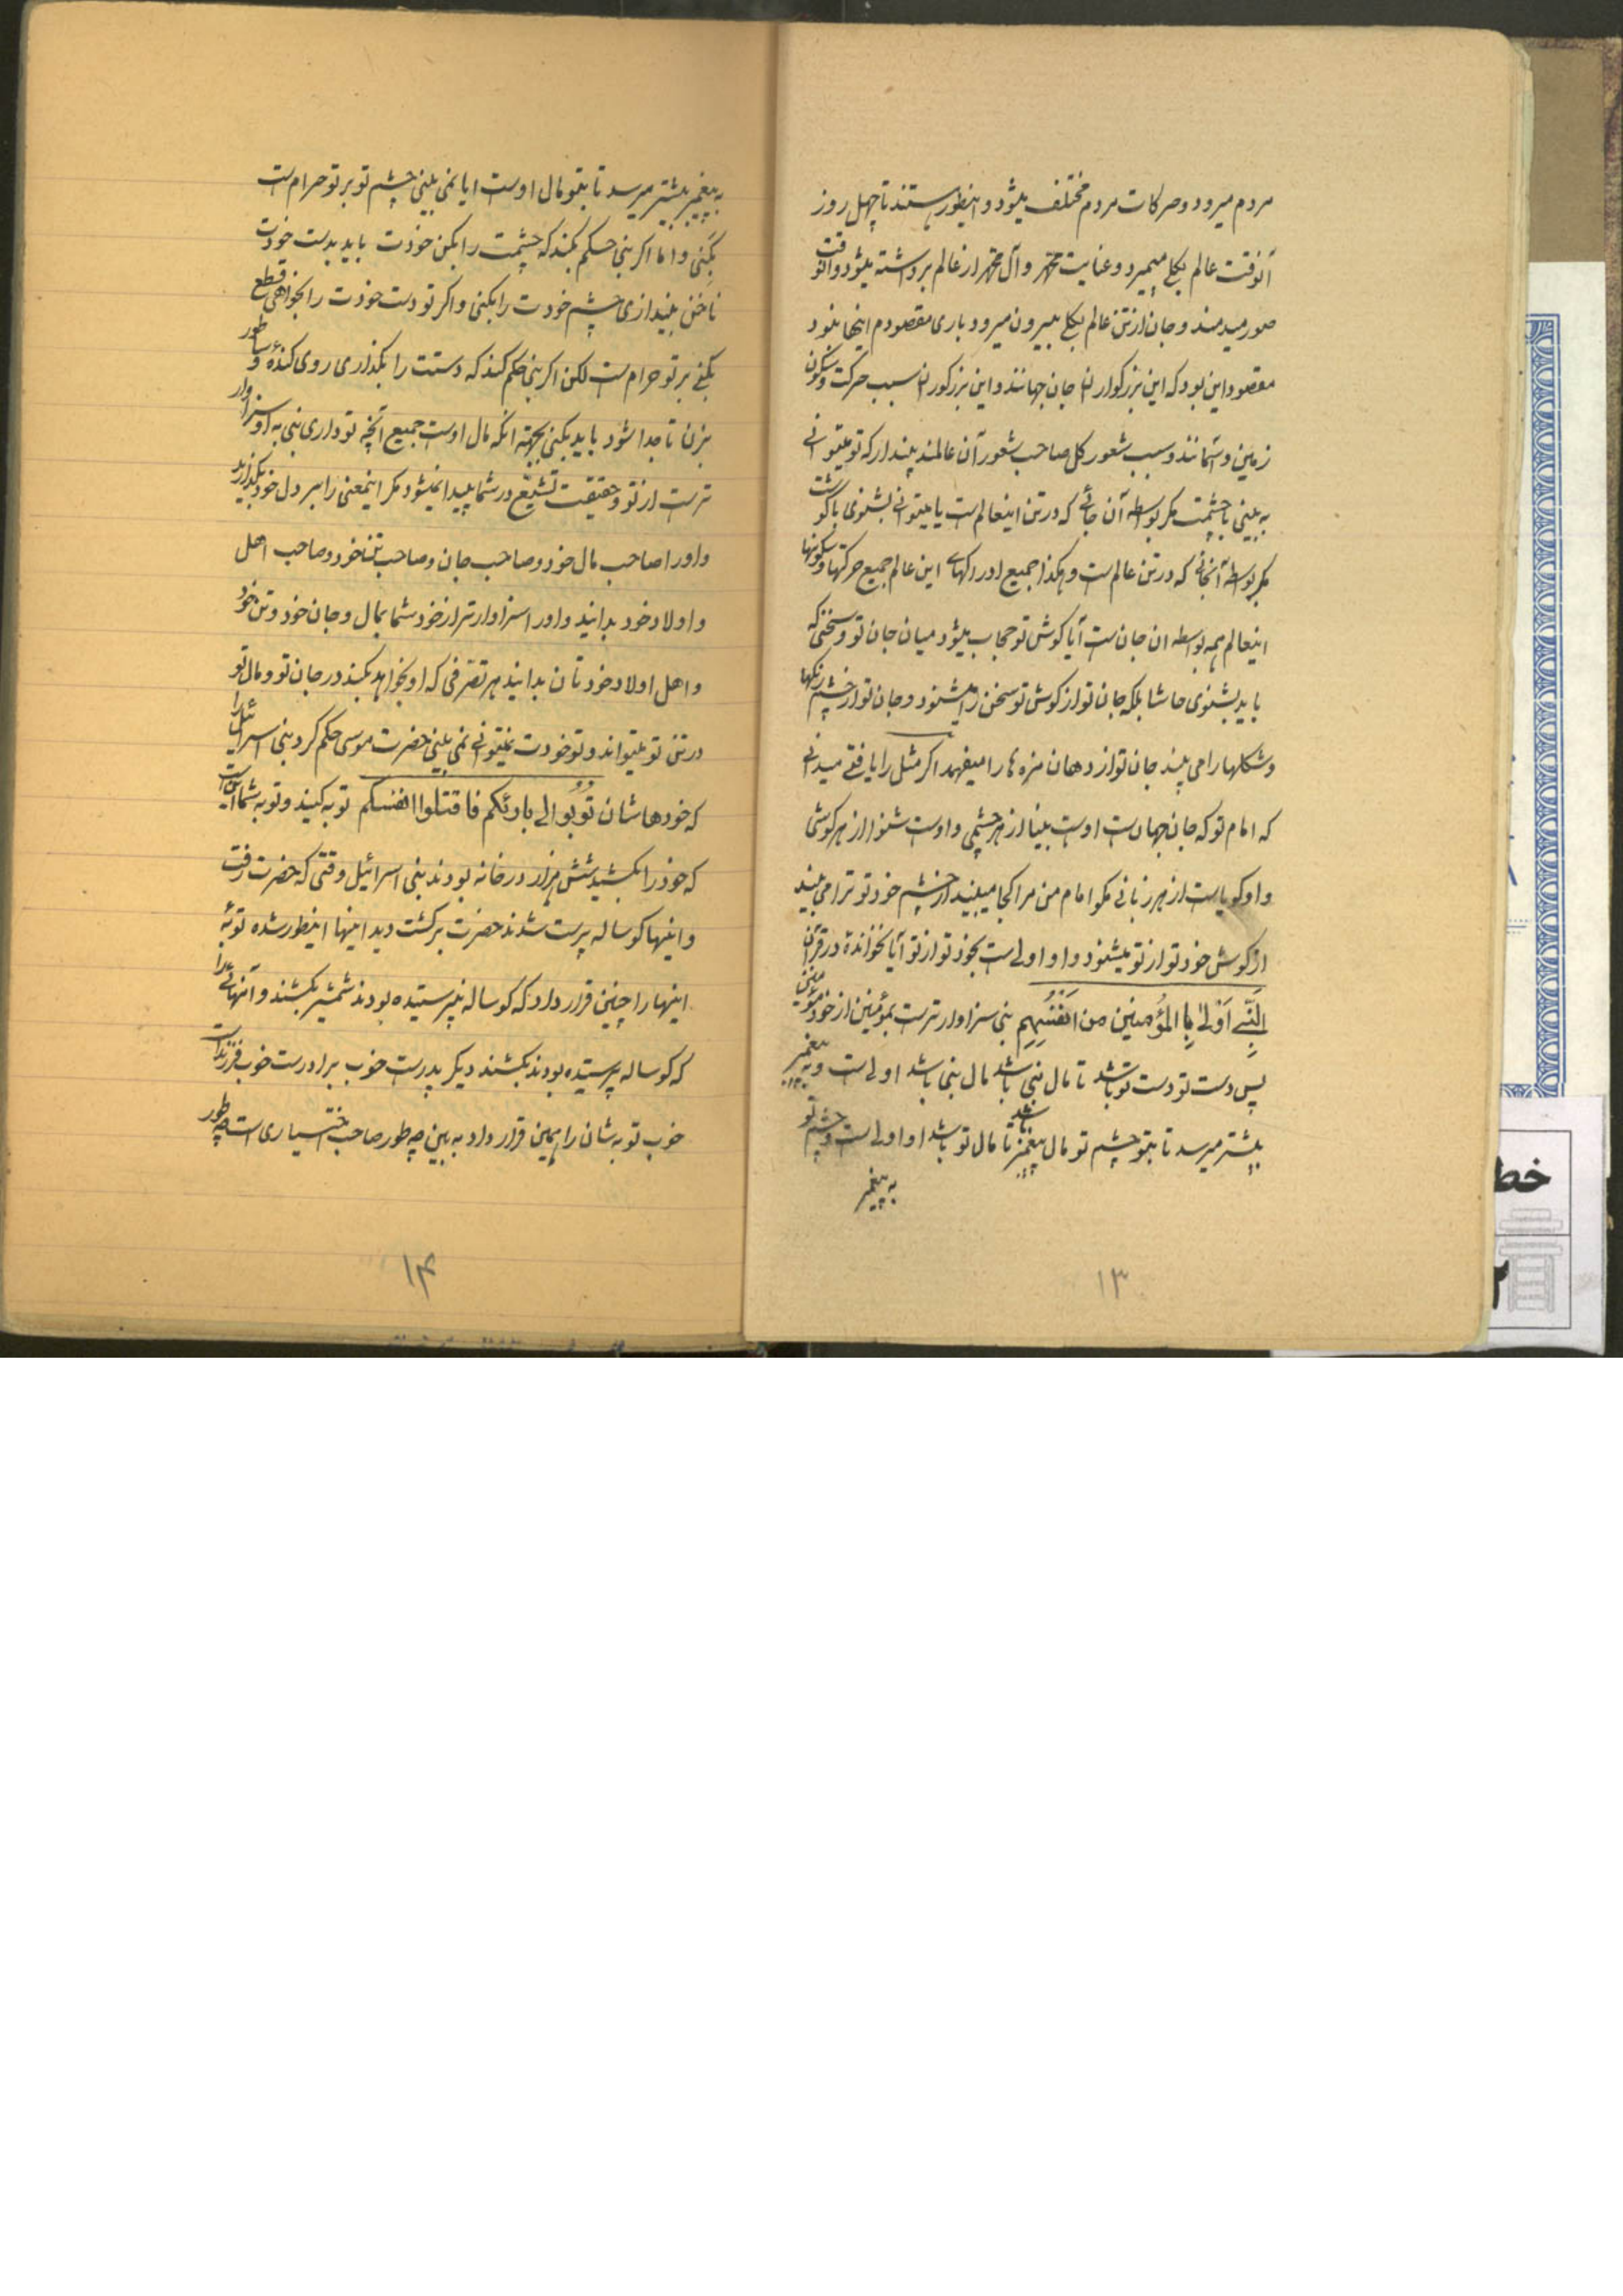 مردم میرود و حرکات مردم مختلف میشود و اینطور هستند تا چهل روز
آنوقت عالم بکلی میمیرد و عنایت محمد و آل محمد از عالم برداشته میشود و آنوقت
صور میدمند و جان از تن عالم بکلی بیرون میرود باری مقصودم اینجا نبود
مقصود این بود که این بزرگواران جان جهانند و این بزرگواران سبب حرکت و سکون
زمین و آسمانند و سبب شعور کل صاحب شعور آن عالمند پندار که تو میتوانی
به بینی با چشمت مگر بواسطه آن جانی که در تن اینعالم است یا میتوانی بشنوی با گوشت
مگر بواسطه آنجانی که در تن عالم است و هکذا جمیع ادراکهای این عالم جمیع حرکتها و سکونهای
اینعالم همه بواسطه ان جان است آیا گوش تو حجاب میشود میان جان تو و سخنی که
باید بشنوی حاشا بلکه جان تو از گوش تو سخن را میشنود و جان تو از چشم رنگها
و شکلها را می بیند جان تو از دهان مزه ها را میفهمد اگر مثل را یافتی میدانی
که امام تو که جان جهان است اوست بینا از هر چشمی و اوست شنوا از هر گوشی
و او گویاست از هر زبانی مگو امام من مرا کجا میبیند از چشم خود تو ترا می بیند
از گوش خود تو از تو میشنود و او اولی است بخود تو از تو آیا نخوانده در قرآن
اَلنَّبِی اَوْلیٰ بِالمُؤمِنین مِن اَنفُسِهِم نبی سزاوارتر است بمؤمنین از خود مؤمنین
پس دست تو دست تو باشد تا مال نبی باشد مال نبی باشد اولی است و به پیغمبر
بیشتر میرسد تا بتو چشم تو مال پیغمبر باشد تا مال تو باشد او اولی است و چشم تو
به پیغمبر
۱۳
به پیغمبر بیشتر میرسد تا بتو مال اوست ایا نمی بینی چشم تو بر تو حرام است
بکَنی و اما اگر نبی حکم بکند که چشمت را بکن خودت باید بدست خودت
ناخن بیندازی چشم خودت را بکنی و اگر تو دست خودت را بخواهی قطع
بکنی بر تو حرام است لکن اگر نبی حکم کند که دستت را بگذاری روی کنده و ساطور
بزن تا جدا شود باید بکنی بجهة انکه مال اوست جمیع آنچه تو داری نبی به او سزاوار
تر است از تو و حقیقت تشیّع در شما پیدا نمیشود مگر اینمعنی را بر دل خود بگذارید
و او را صاحب مال خود و صاحب جان و صاحب تن خود و صاحب اهل
و اولاد خود بدانید و او را سزاوارتر از خود شما بمال و جان خود و تن خود
و اهل اولاد خودتان بدانید هر تصرّفی که او بخواهد بکند در جان تو و مال تو
در تن تو میتواند و تو خودت نمیتوانی نمی بینی حضرت موسی حکم کرد بنی اسرائیل را
که خودهاشان تُوبُوا الی بارئکم فاقتلوا انفسکم توبه کنید و توبه شما اینست
که خود را بکشید شش هزار در خانه بودند بنی اسرائیل وقتی که حضرت رفت
و اینها گوساله پرست شدند حضرت برگشت دید اینها اینطور شده توبهٔ
اینها را چنین قرار داد که گوساله نپرستیده بودند شمشیر بکشند و آنهائی را
که گوساله پرستیده بودند بکشند دیگر پدرست خوب برادرست خوب فرزندست
خوب توبه شان را همین قرار داد به بین چه طور صاحب اختسیاری است چه طور
۱۴
خط